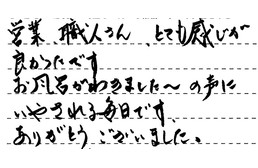 営業、職人さん、とても感じが
良かったです
お風呂がわきました〜の声に
いやされる毎日です。
ありがとうございました。